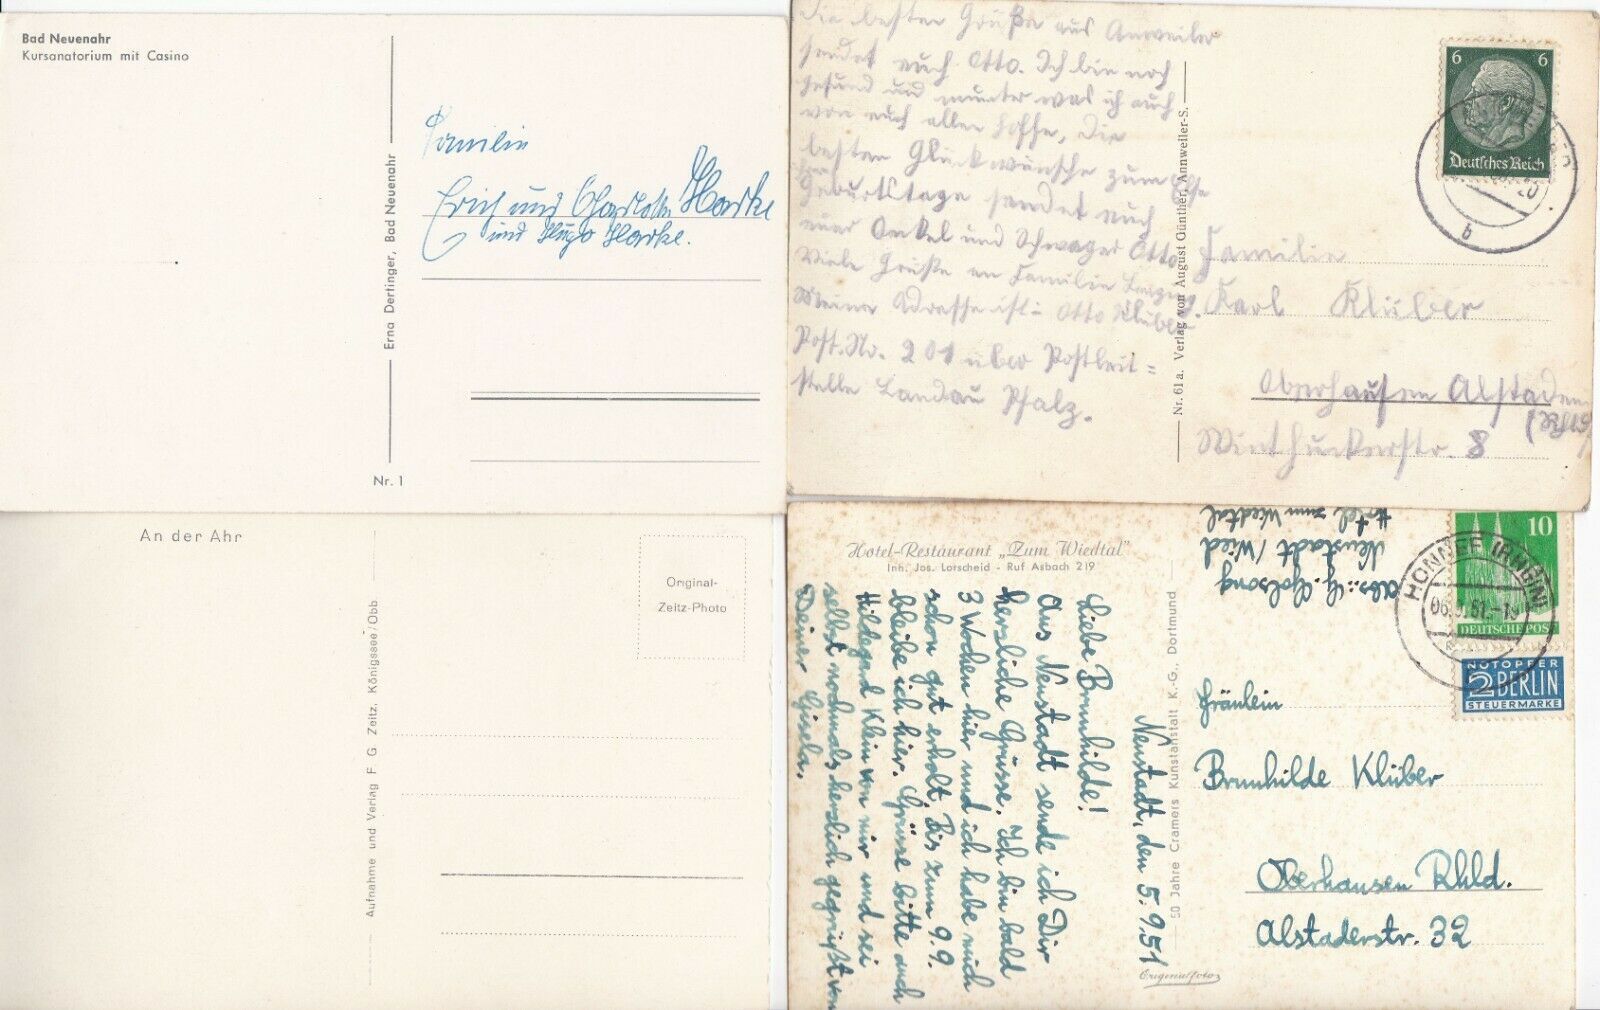 Bad Neuenahr
Kursanatorium mit Casino
Familie
Erich und Charlotte Harke
und Hugo Harke.
Erna Dertinger, Bad Neuenahr
Nr. 1
Die besten Grüße aus Anweiler
sendet euch Otto. Ich bin noch
gesund und munter was ich auch
von euch allen hoffe, die
besten Glückwünsche zum
Geburtstage sendet euch
euer Onkel und Schwager Otto
Viele Grüße an Familie
Meine Adresse ist: Otto Klüber
Post. Nr. 201 über Postleit=
stelle Landau Pfalz.
Nr. 61a. Verlag von August Günther, Annweiler-S.
6 6
Deutsches Reich
b
Familie
Karl Klüber
Oberhausen Alstaden
(Rhld)
8
An der Ahr
Aufnahme und Verlag F. G. Zeitz, Königssee/Obb
Original-
Zeitz-Photo
Hotel-Restaurant „Zum Wiedtal"
Inh. Jos. Lorscheid - Ruf Asbach 219
Neustadt, den 5.9.51
Liebe Brunhilde!
Aus Neustadt sende ich Dir
herzliche Grüsse. Ich bin bald
3 Wochen hier und ich habe mich
schon gut erholt. Bis zum 9.9.
bleibe ich hier. Grüsse bitte auch
Hildegard Klein von mir und sei
selbst nochmals herzlich gegrüßt von
Deiner Gisela.
50 Jahre Cramers Kunstanstalt K.-G., Dortmund
Originalfoto
Abs.: G. Golsong
Neustadt/Wied
Hotel zum Wiedtal
10
DEUTSCHE POST
HONNEF (RHEIN)
NOTOPFER
2 BERLIN
STEUERMARKE
Fräulein
Brunhilde Klüber
Oberhausen Rhld.
Alstaderstr. 32